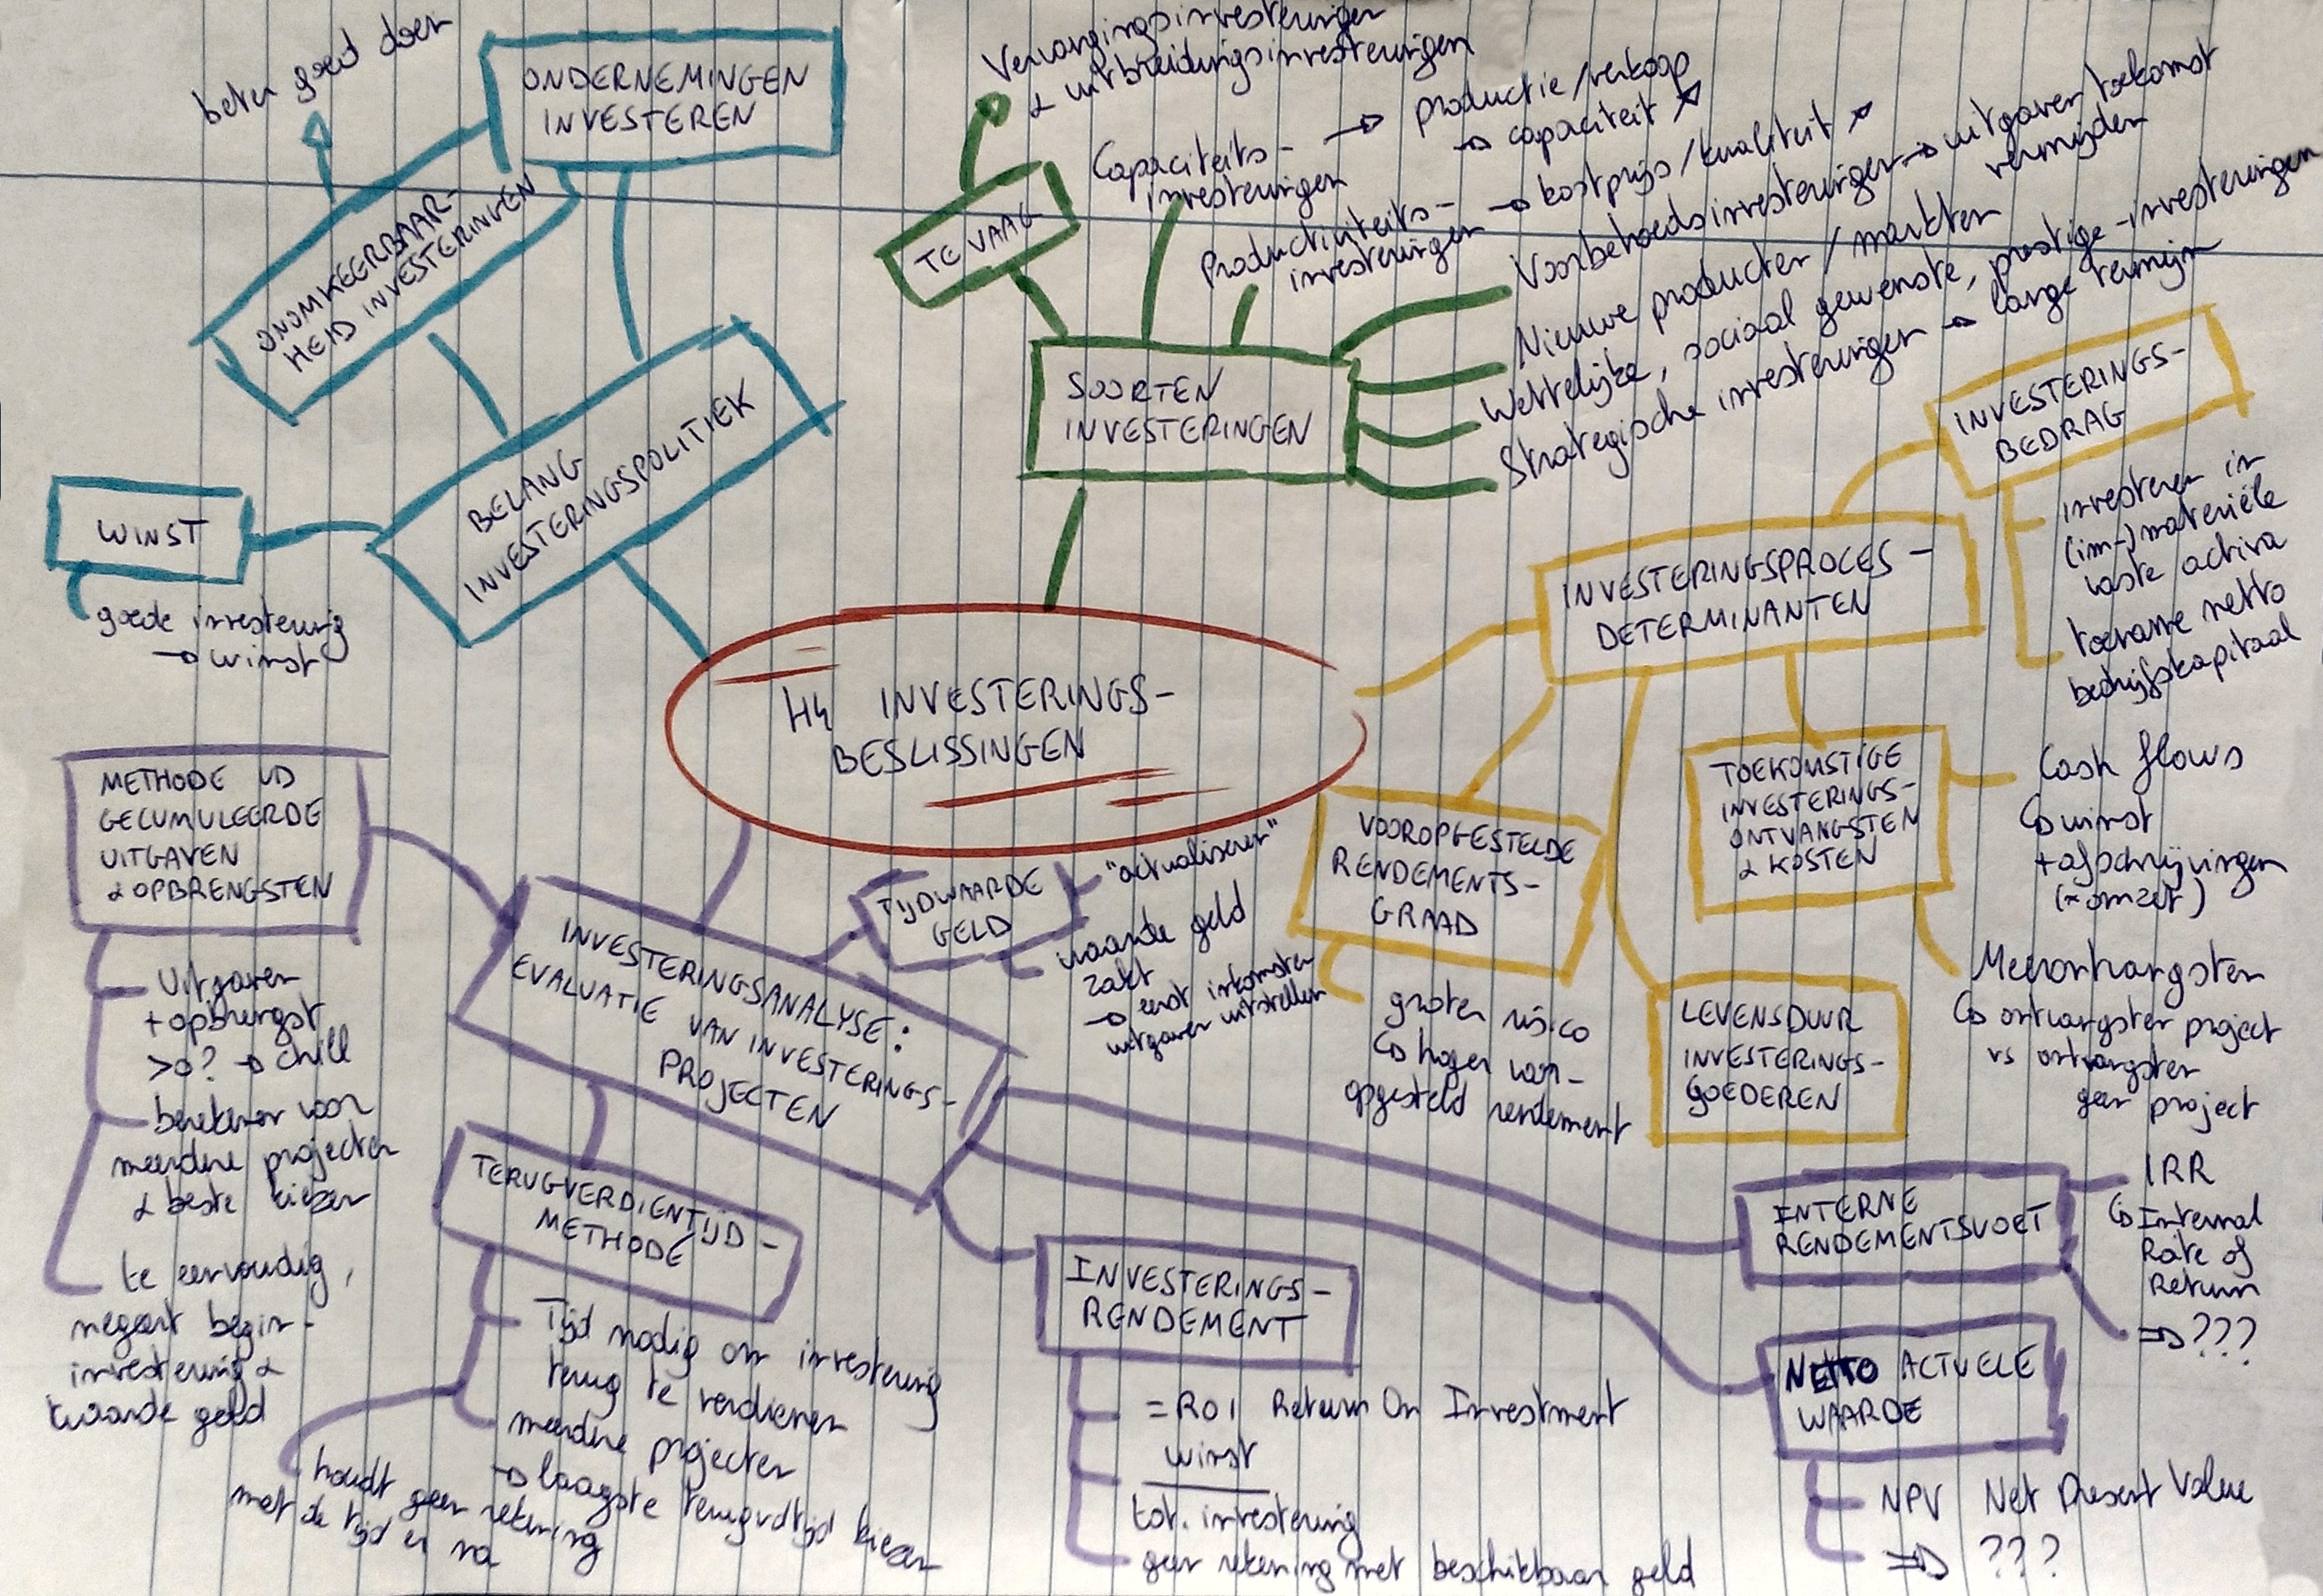 beter goed doen
ONDERNEMINGEN
INVESTEREN
ONOMKEERBAAR-
HEID INVESTERINGEN
BELANG
INVESTERINGSPOLITIEK
WINST
goede investering
→ winst
Vervangingsinvesteringen
& uitbreidingsinvesteringen
TE VAAG
Capaciteits-
investeringen
→ productie/verkoop
→ capaciteit ↗
Productiviteits-
investeringen → kostprijs/kwaliteit ↗
Voorbehoedsinvesteringen → uitgaven toekomst
vermijden
Nieuwe producten / markten
Wettelijke, sociaal gewenste, prestige-investeringen
Strategische investeringen → lange termijn
SOORTEN
INVESTERINGEN
H4 INVESTERINGS-
BESLISSINGEN
INVESTERINGSPROCES-
DETERMINANTEN
INVESTERINGS-
BEDRAG
investeren in
(im-)materiële
vaste activa
toename netto
bedrijfskapitaal
TOEKOMSTIGE
INVESTERINGS-
ONTVANGSTEN
& KOSTEN
Cash flows
↳ winst
+ afschrijvingen
(≈ omzet)
Meerontvangsten
↳ ontvangsten project
vs ontvangsten
geen project
VOOROPGESTELDE
RENDEMENTS-
GRAAD
groter risico
↳ hoger voor-
opgesteld rendement
LEVENSDUUR
INVESTERINGS-
GOEDEREN
TIJDWAARDE
GELD
"actualiseren"
waarde geld
zakt
→ eerst inkomsten
uitgaven uitstellen
INVESTERINGSANALYSE:
EVALUATIE VAN INVESTERINGS-
PROJECTEN
METHODE VD
GECUMULEERDE
UITGAVEN
& OPBRENGSTEN
Uitgaven
+ opbrengst
>0? → chill
berekenen voor
meerdere projecten
& beste kiezen
te eenvoudig,
negeert begin-
investering &
waarde geld
TERUGVERDIENTIJD-
METHODE
Tijd nodig om investering
terug te verdienen
meerdere projecten
→ laagste terugvdtijd kiezen
houdt geen rekening
met de tijd er na
INVESTERINGS-
RENDEMENT
= ROI Return On Investment
winst
tot. investering
geen rekening met beschikbaar geld
INTERNE
RENDEMENTSVOET
IRR
↳ Internal
Rate of
Return
⇒ ???
NETTO ACTUELE
WAARDE
NPV Net Present Value
⇒ ???